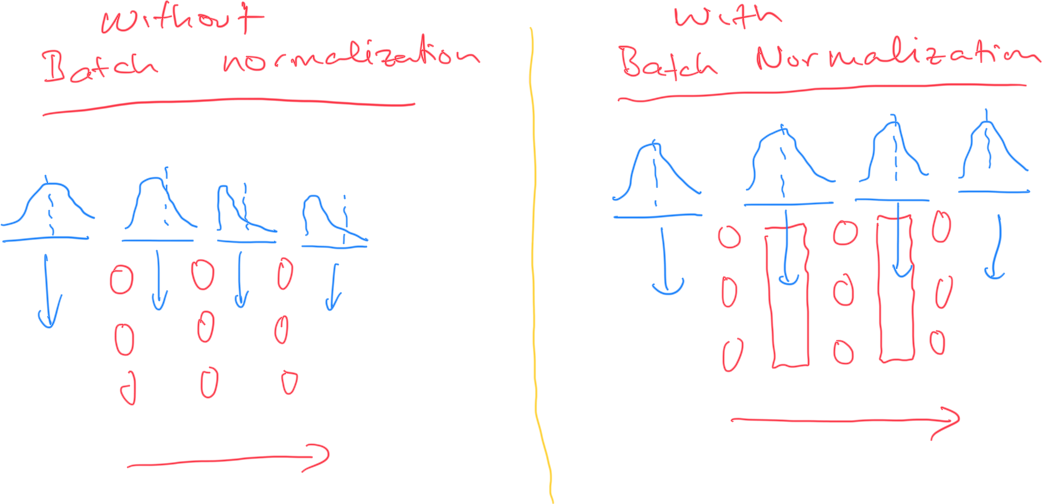 Without
Batch normalization
With
Batch Normalization